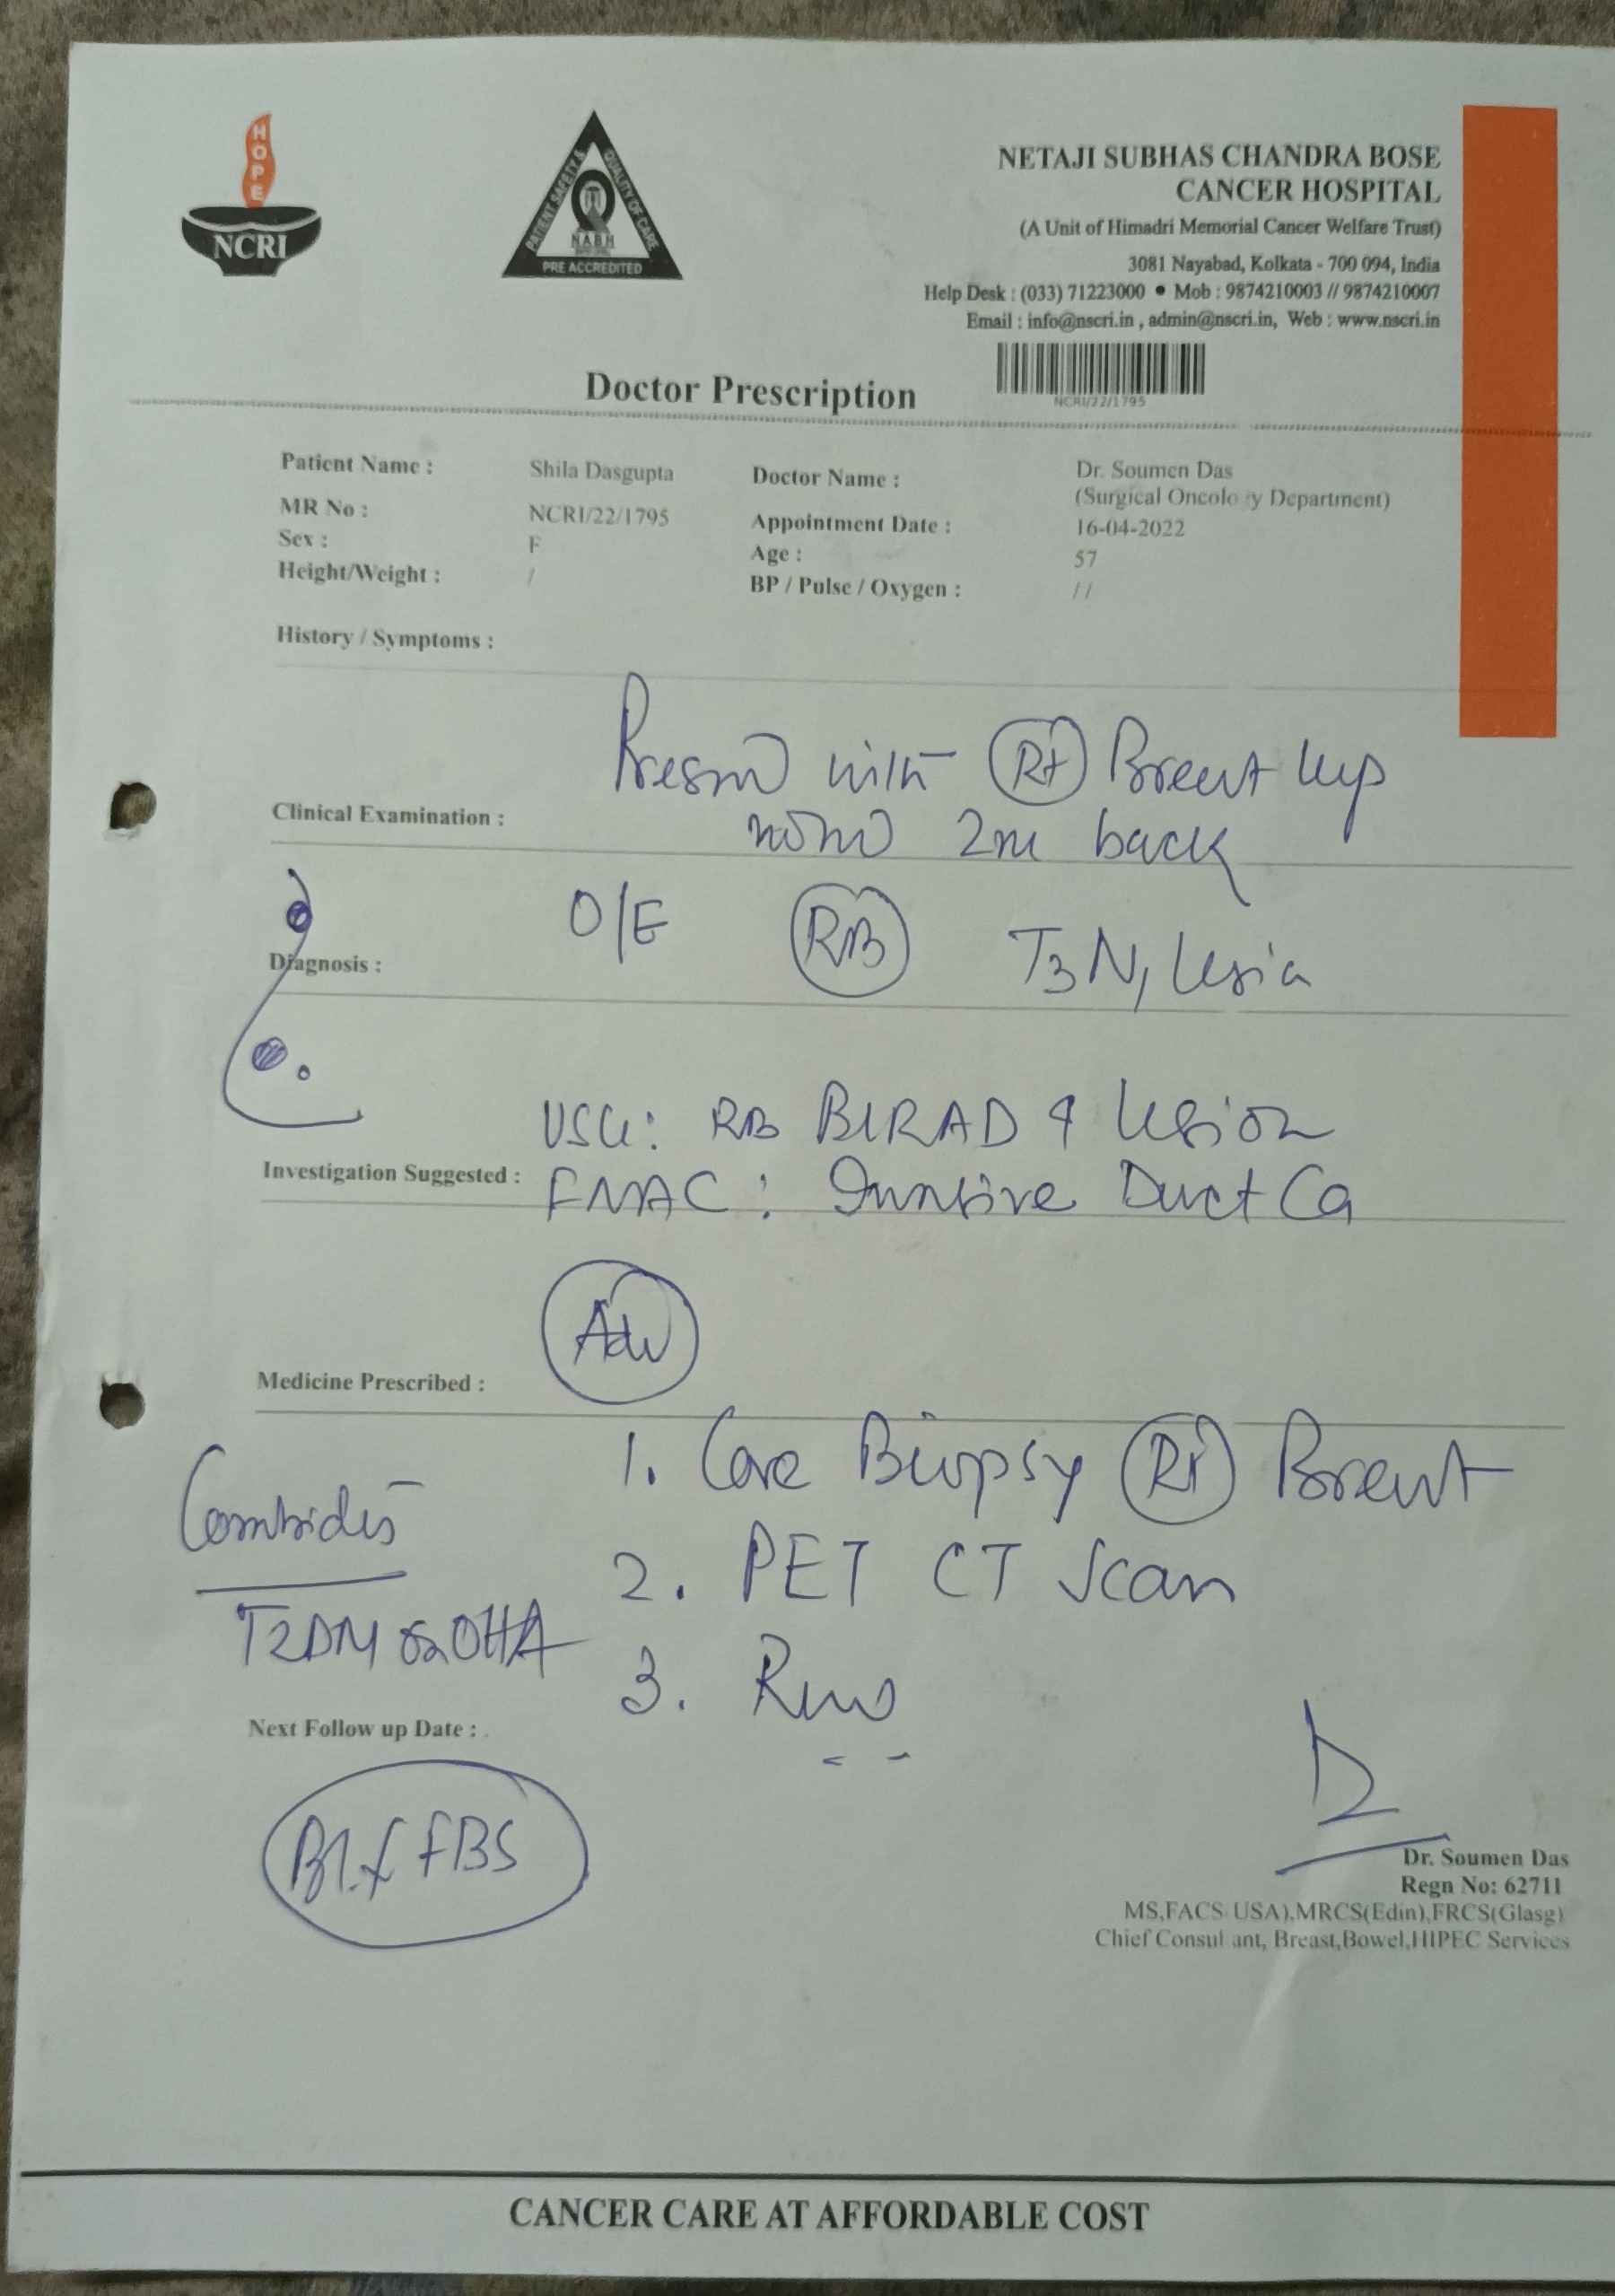 HOPE
NCRI
PATIENT SAFETY & QUALITY OF CARE
NABH
PRE ACCREDITED
NETAJI SUBHAS CHANDRA BOSE
CANCER HOSPITAL
(A Unit of Himadri Memorial Cancer Welfare Trust)
3081 Nayabad, Kolkata - 700 094, India
Help Desk : (033) 71223000 • Mob : 9874210003 // 9874210007
Email : info@nscri.in , admin@nscri.in, Web : www.nscri.in
NCRI/22/1795
Doctor Prescription
Patient Name : Shila Dasgupta Doctor Name : Dr. Soumen Das
(Surgical Oncolo y Department)
MR No : NCRI/22/1795 Appointment Date : 16-04-2022
Sex : F Age : 57
Height/Weight : / BP / Pulse / Oxygen : / /
History / Symptoms :
with Rt Breast lump
Clinical Examination :
2m back
O/E RB T3 N1 lesion
Diagnosis :
USG: RB BIRAD 4 lesion
Investigation Suggested :
FNAC : Duct Ca
Adv
Medicine Prescribed :
1. Core Biopsy Rt Breast
2. PET CT Scan
T2DM on OHA
3.
Next Follow up Date :
FBS
Dr. Soumen Das
Regn No: 62711
MS,FACS USA),MRCS(Edin),FRCS(Glasg)
Chief Consul ant, Breast,Bowel,HIPEC Services
CANCER CARE AT AFFORDABLE COST